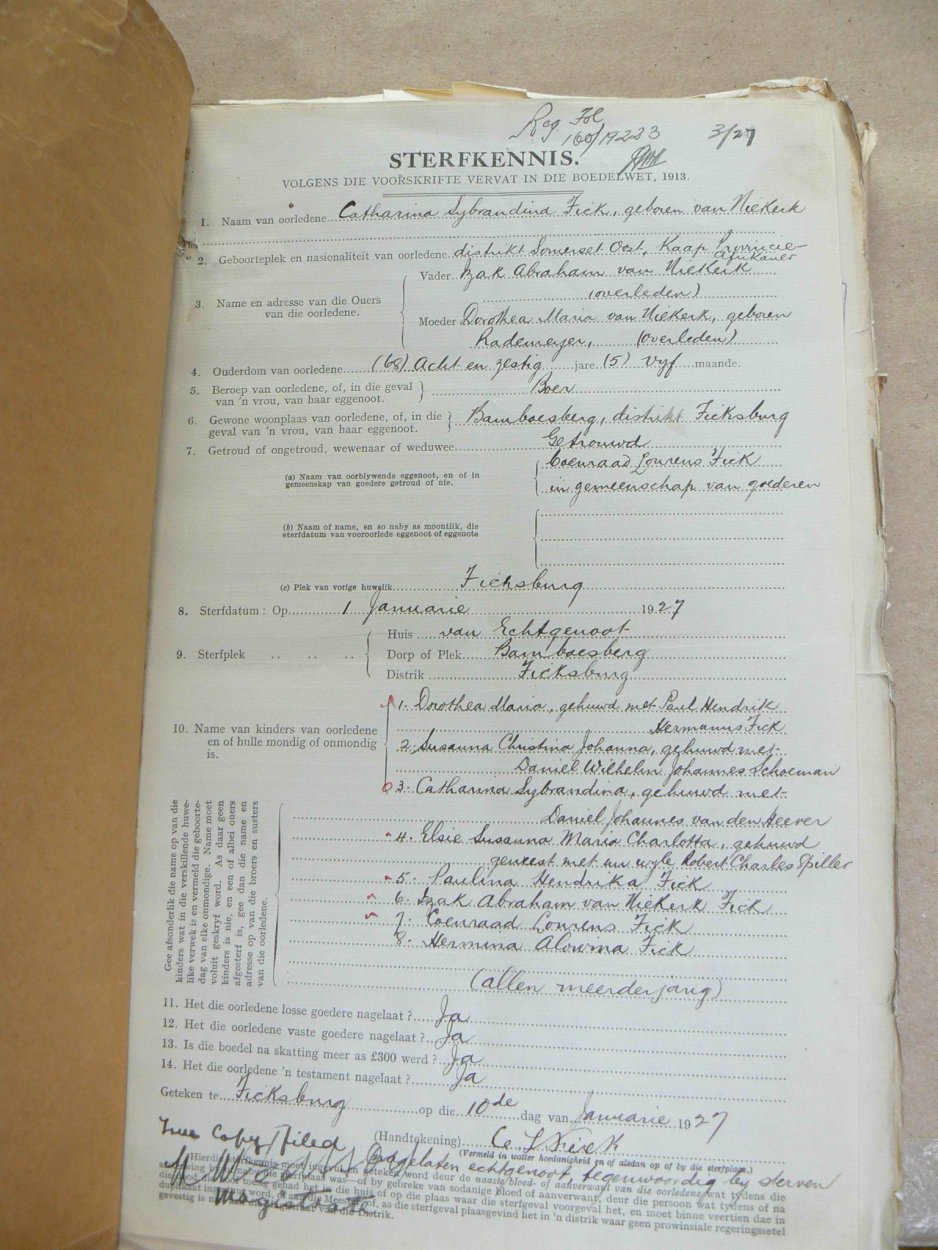 Reg Fol
160/19233 3/27
STERFKENNIS.
VOLGENS DIE VOORSKRIFTE VERVAT IN DIE BOEDELWET, 1913.
1. Naam van oorledene Catharina Sybrandina Fick, geboren van Niekerk
2. Geboorteplek en nasionaliteit van oorledene distrikt Somerset Oost, Kaap Provincie
Afrikaner
3. Name en adresse van die Ouers van die oorledene.
Vader Izak Abraham van Niekerk
(overleden)
Moeder Dorothea Maria van Niekerk, geboren
Rademeyer, (overleden)
4. Ouderdom van oorledene (68) Acht en zestig jare (5) vyf maande.
5. Beroep van oorledene, of, in die geval
van 'n vrou, van haar eggenoot. Boer
6. Gewone woonplaas van oorledene, of, in die
geval van 'n vrou, van haar eggenoot. Bamboesberg, distrikt Ficksburg
7. Getroud of ongetroud, wewenaar of weduwee Getrouwd
(a) Naam van oorblywende eggenoot, en of in
gemeenskap van goedere getroud of nie.
Coenraad Lourens Fick
in gemeenschap van goederen
(b) Naam of name, en so naby as moontlik, die
sterfdatum van vooroorlede eggenoot of eggenote
(c) Plek van vorige huwelik Ficksburg
8. Sterfdatum: Op 1 Januarie 1927
9. Sterfplek
Huis van Echtgenoot
Dorp of Plek Bamboesberg
Distrik Ficksburg
10. Name van kinders van oorledene
en of hulle mondig of onmondig
is.
1. Dorothea Maria, gehuwd met Paul Hendrik
Hermanus Fick
2. Susanna Christina Johanna, gehuwd met
Daniel Wilhelm Johannes Schoeman
3. Catharina Sybrandina, gehuwd met
Daniel Johannes van den Heever
4. Elsie Susanna Maria Charlotta, gehuwd
geweest met nu wyle Robert Charles Spiller
5. Paulina Hendrika Fick
6. Izak Abraham van Niekerk Fick
7. Coenraad Lourens Fick
8. Hermina Fick
(allen meerderjarig)
Gee afsonderlik die name op van die
kinders wat in die verskillende huwe-
like verwek is en vermeld die geboorte-
dag van elke onmondige. Name moet
voluit geskryf word. As daar geen
kinders is nie, en een of albei ouers
afgesterf is, gee dan die name en
adresse op van die broers en susters
van die oorledene.
11. Het die oorledene losse goedere nagelaat? Ja
12. Het die oorledene vaste goedere nagelaat? Ja
13. Is die boedel na skatting meer as £300 werd? Ja
14. Het die oorledene 'n testament nagelaat? Ja
Geteken te Ficksburg op die 10de dag van Januarie 1927
True Copy/filed (Handtekening) C L Fick
(Vermeld in watter hoedanigheid en of aldan op of by die sterfplaas.)
Nagelaten echtgenoot, tegenwoordig by sterven
Magistrate
Hierdie sterfkennis moet ingevul en geteken word deur die naaste bloed- of aanverwant van die oorledene, wat tydens die